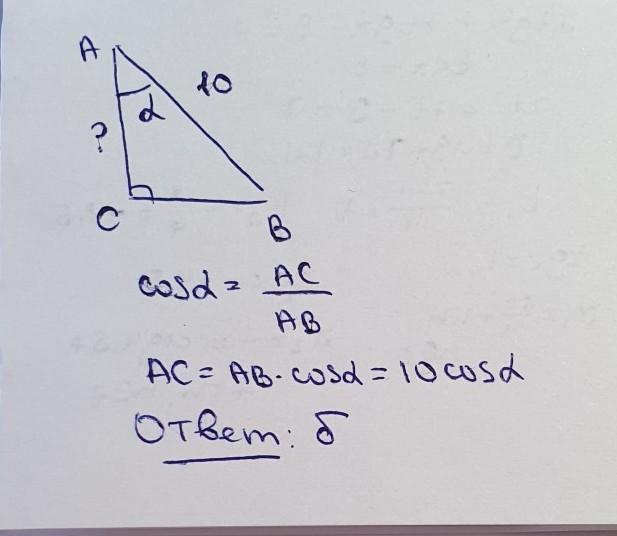 A
10
α
?
C
B
cosα = AC/AB
AC = AB · cosα = 10cosα
Ответ: б